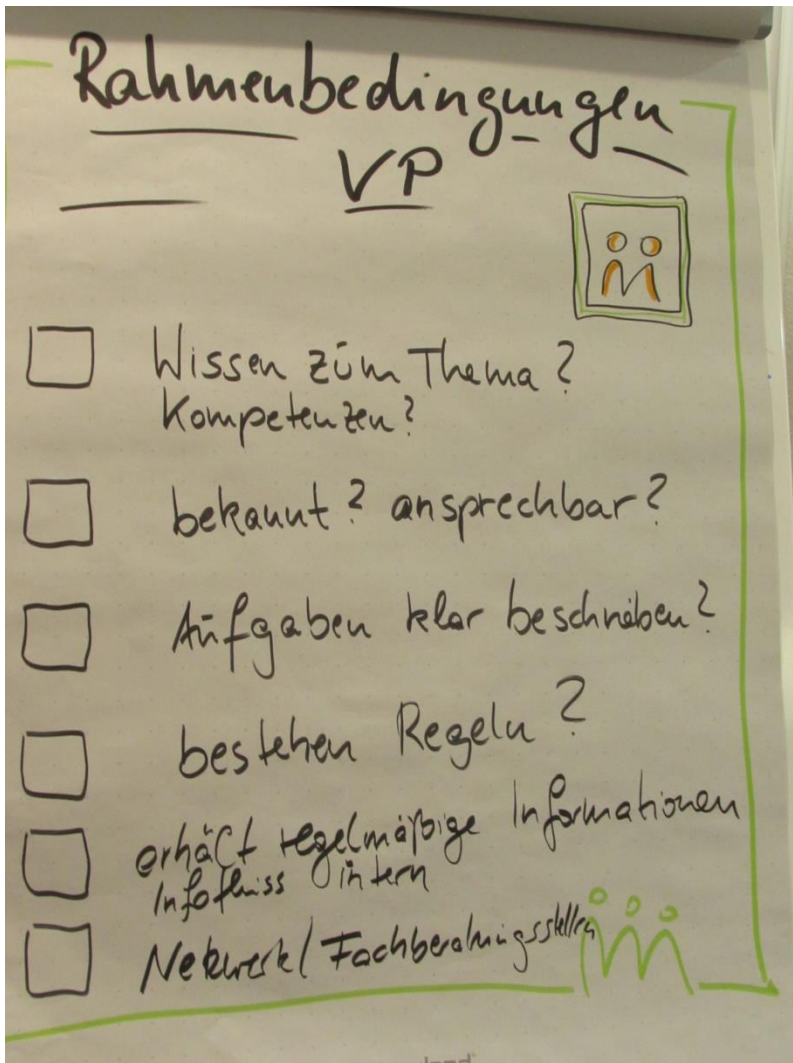 Rahmenbedingungen
VP
Wissen zum Thema?
Kompetenzen?
bekannt? ansprechbar?
Aufgaben klar beschrieben?
bestehen Regeln?
erhält regelmäßige Informationen
Infofluss intern
Netzwerk/Fachberatungsstellen